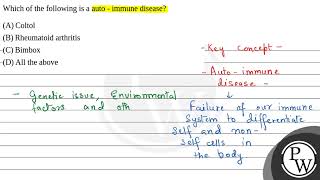 Which of the following is a auto - immune disease?
(A) Coltol
(B) Rheumatoid arthritis
(C) Bimbox
(D) All the above
- Key concept -
- Auto - immune
disease -
- Genetic issue, Environmental
factors and oth
Failure of our immune
system to differentiate
self and non-
self cells in
the body
PW